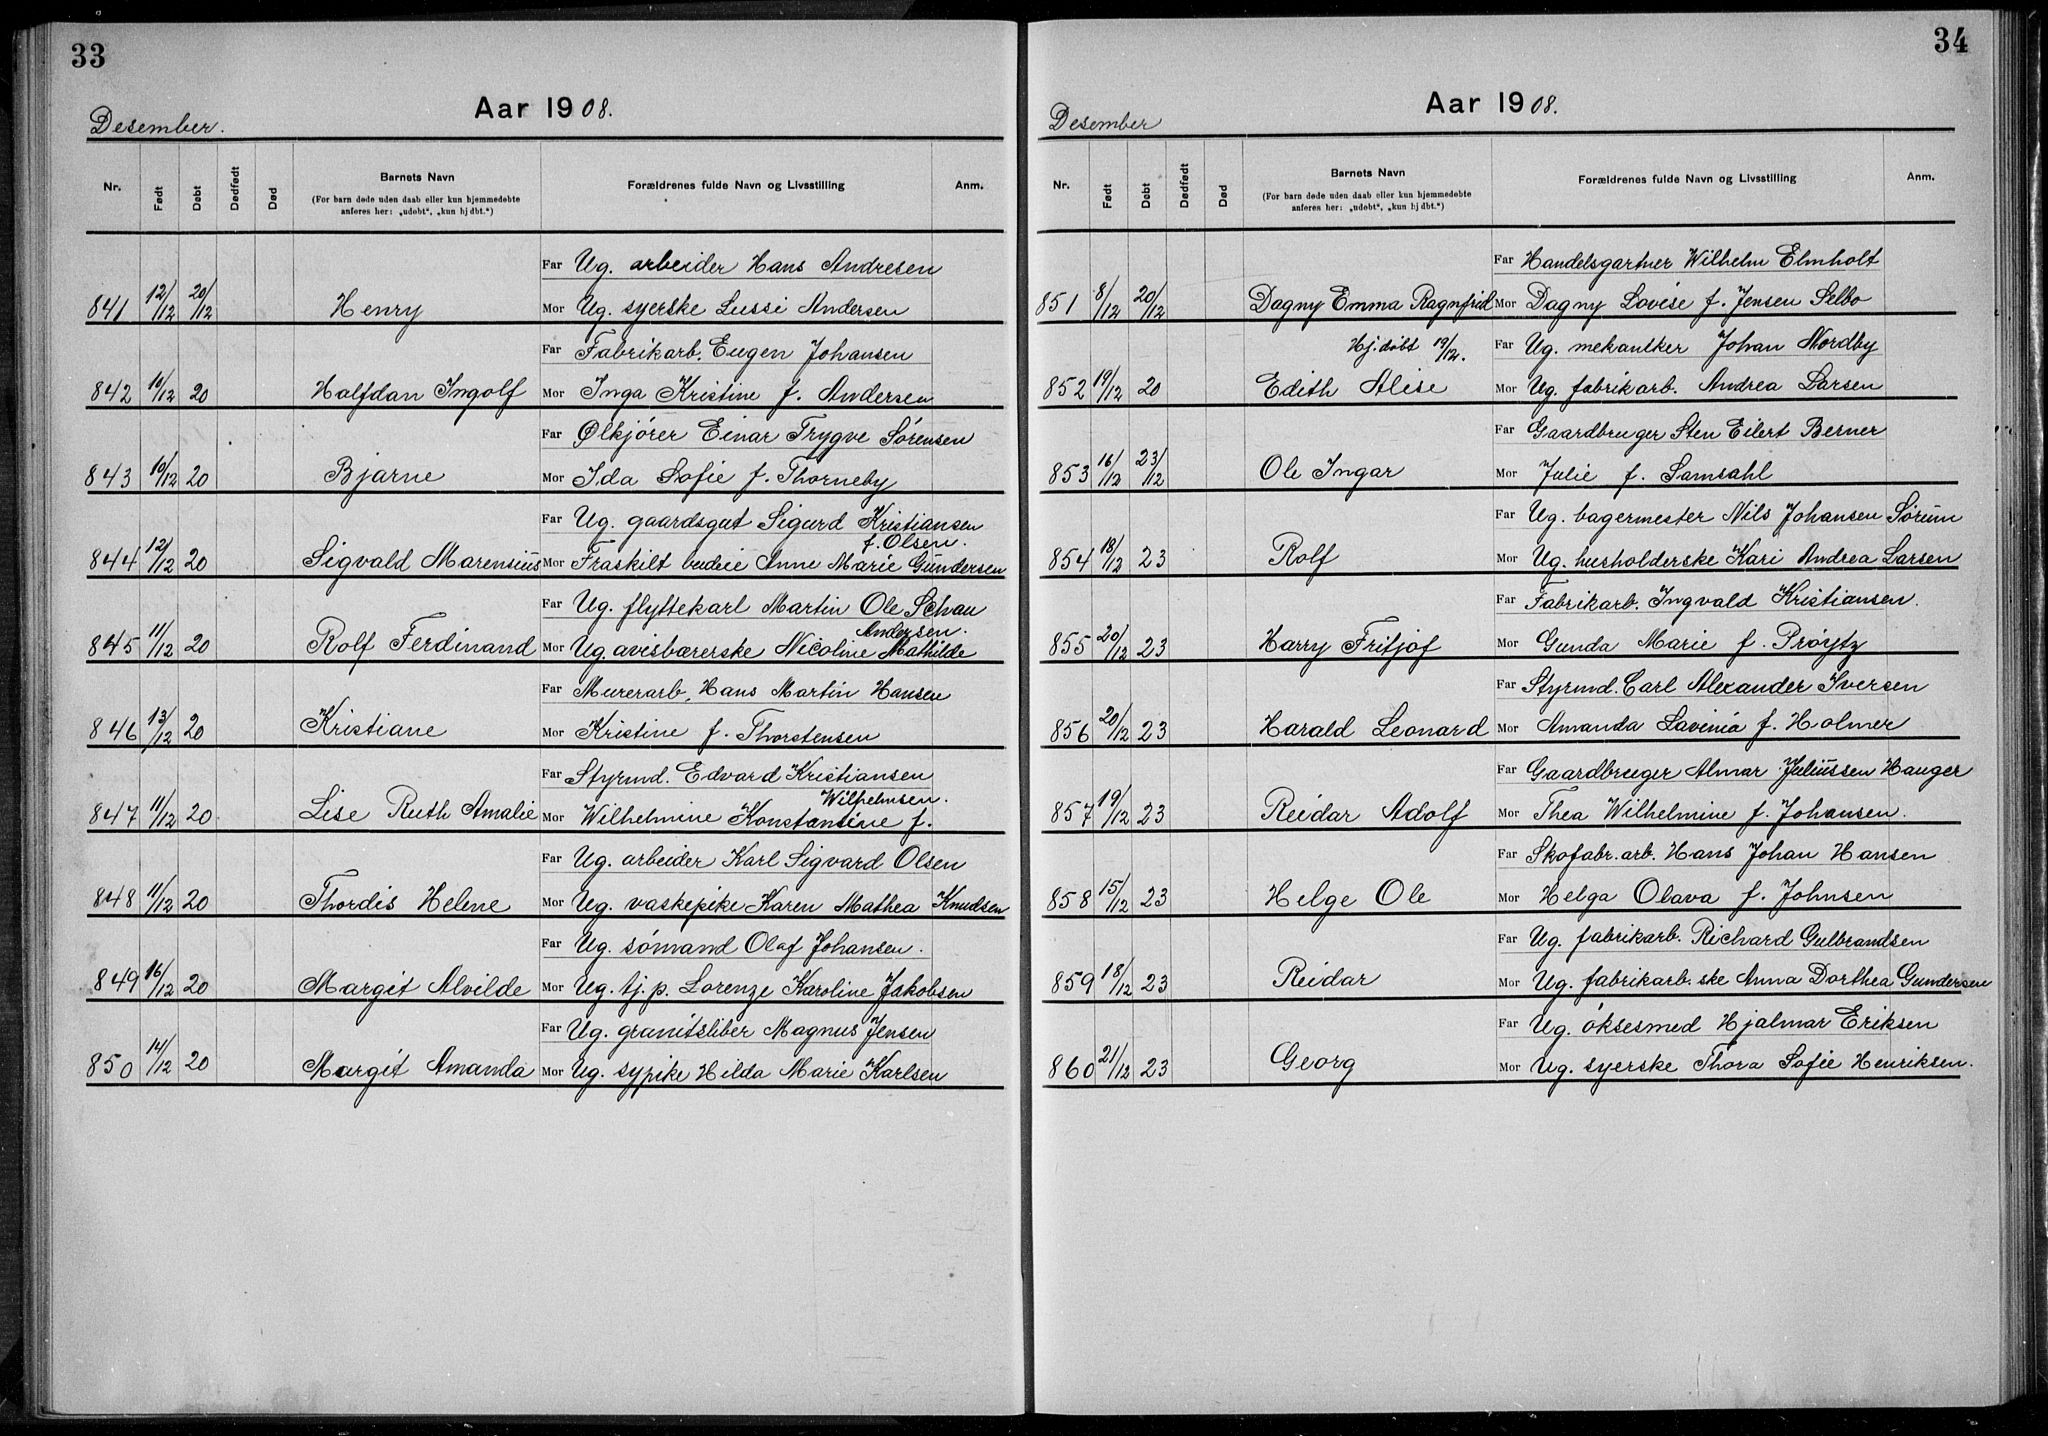 33
Aar 1908.
Desember.
Nr. Født Døbt Dødfødt Død Barnets Navn Forældrenes fulde Navn og Livsstilling Anm.
(For barn døde uden daab eller kun hjemmedøbte
anføres her: „udøbt“, „kun hj dbt.“)
Far Ug. arbeider Hans Andresen
841 12/12 20/12 Henry Mor Ug. syerske Lussi Andersen
Far Fabrikarb. Eugen Johansen
842 10/12 20 Halfdan Ingolf Mor Inga Kristine f. Andersen
Far Ølkjører Einar Trygve Sørensen
843 10/12 20 Bjarne Mor Ida Sofie f. Thorneby
Far Ug. gaardsgut Sigurd Kristiansen
f. Olsen.
844 12/12 20 Sigvald Marensius Mor Fraskilt budeie Anne Marie Gundersen
Far Ug. flyttekarl Martin Ole Schau
Andersen.
845 11/12 20 Rolf Ferdinand Mor Ug. avisbærerske Nicoline Mathilde
Far Murerarb. Hans Martin Hansen
846 13/12 20 Kristiane Mor Kristine f. Thorstensen
Far Styrmd. Edvard Kristiansen
Wilhelmsen.
847 11/12 20 Lise Ruth Amalie Mor Wilhelmine Konstantine f.
Far Ug. arbeider Karl Sigvard Olsen
848 11/12 20 Thordis Helene Mor Ug. vaskepike Karen Mathea Knudsen
Far Ug. sømand Olaf Johansen.
849 16/12 20 Margit Alvilde Mor Ug. tj. p. Lorenze Karoline Jakobsen
Far Ug. granitsliber Magnus Jensen
850 14/12 20 Margit Amanda Mor Ug. sypike Hilda Marie Karlsen
34
Aar 1908.
Desember
Nr. Født Døbt Dødfødt Død Barnets Navn Forældrenes fulde Navn og Livsstilling Anm.
(For barn døde uden daab eller kun hjemmedøbte
anføres her: „udøbt“, „kun hj dbt.“)
Far Handelsgartner Wilhelm Elmholt
851 8/12 20/12 Dagny Emma Ragnfrid Mor Dagny Lovise f. Jensen Selbo
Hj. døbt 19/12. Far Ug. mekaniker Johan Nordby
852 19/12 20 Edith Alise Mor Ug. fabrikarb. Andrea Larsen
Far Gaardbruger Sten Eilert Berner
853 16/12 23/12 Ole Ingar Mor Julie f. Samsahl
Far Ug. bagermester Nils Johansen Sørum
854 18/12 23 Rolf Mor Ug. husholderske Kari Andrea Larsen
Far Fabrikarb. Ingvald Kristiansen.
855 20/12 23 Harry Fritjof Mor Gunda Marie f. Prøytz
Far Styrmd. Carl Alexander Iversen
856 20/12 23 Harald Leonard Mor Amanda Lavinia f. Holmer
Far Gaardbruger Almar Juliussen Hauger
857 19/12 23 Reidar Adolf Mor Thea Wilhelmine f. Johansen.
Far Skofabr. arb. Hans Johan Hansen
858 15/12 23 Helge Ole Mor Helga Olava f. Johnsen
Far Ug. fabrikarb. Richard Gulbrandsen
859 18/12 23 Reidar Mor Ug. fabrikarb. ske Anna Dorthea Gundersen
Far Ug. øksesmed Hjalmar Eriksen
860 21/12 23 Georg Mor Ug. syerske Thora Sofie Henriksen.